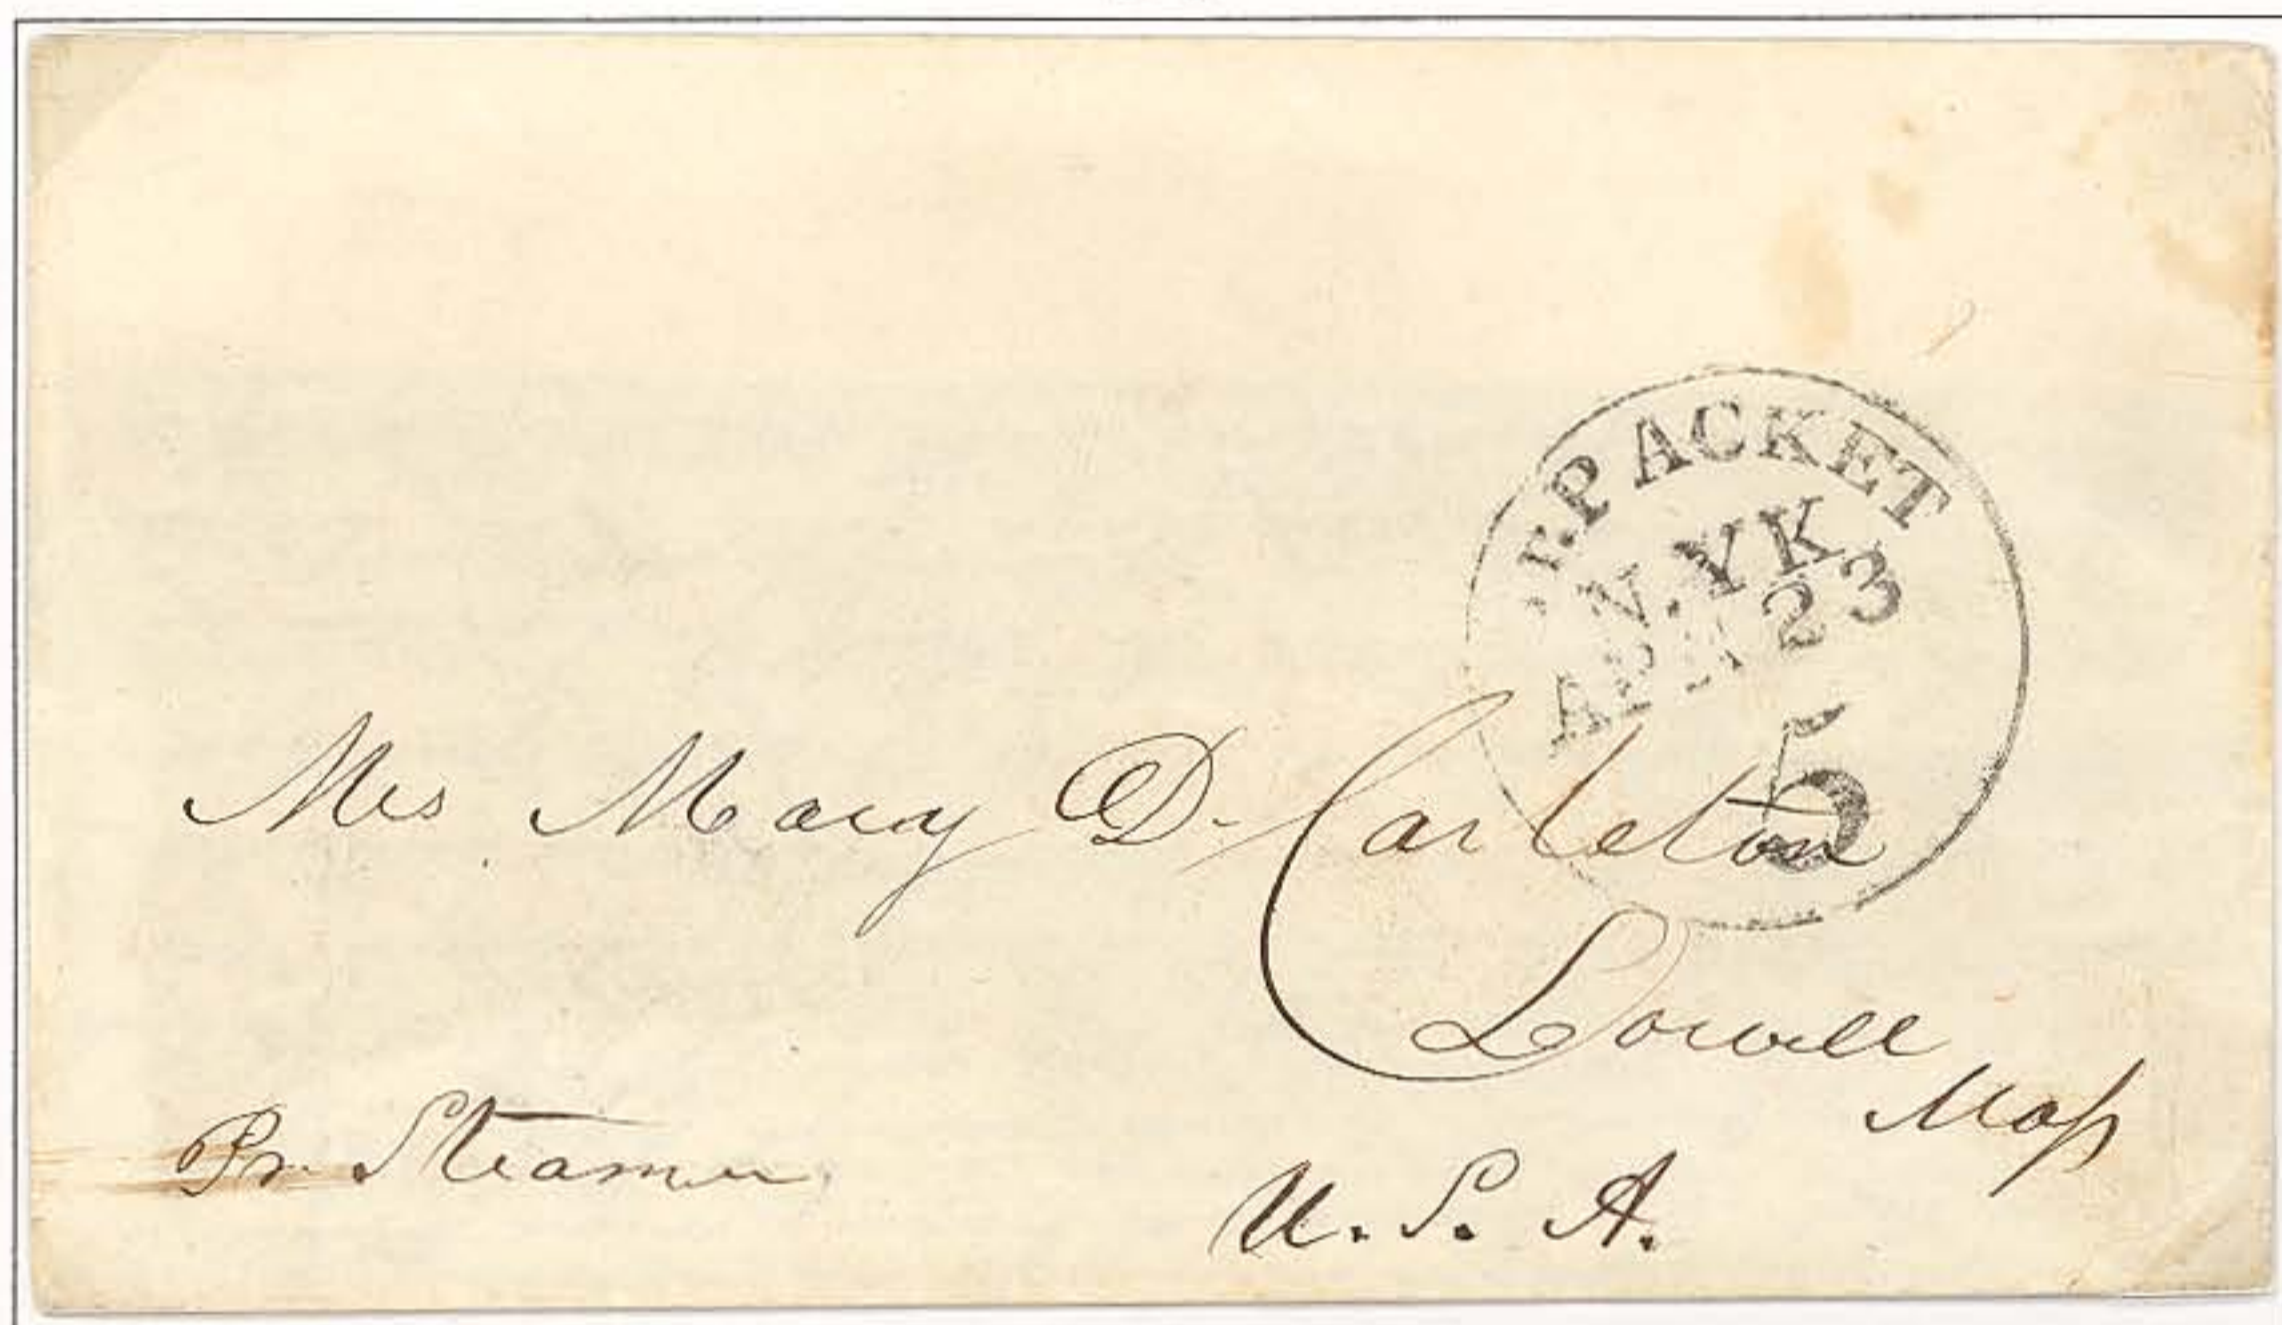 PACKET
N.YK
APR 23
5
Mrs Mary D. Carleton
Lowell
Mass
Pr. Steamer
U. S. A.